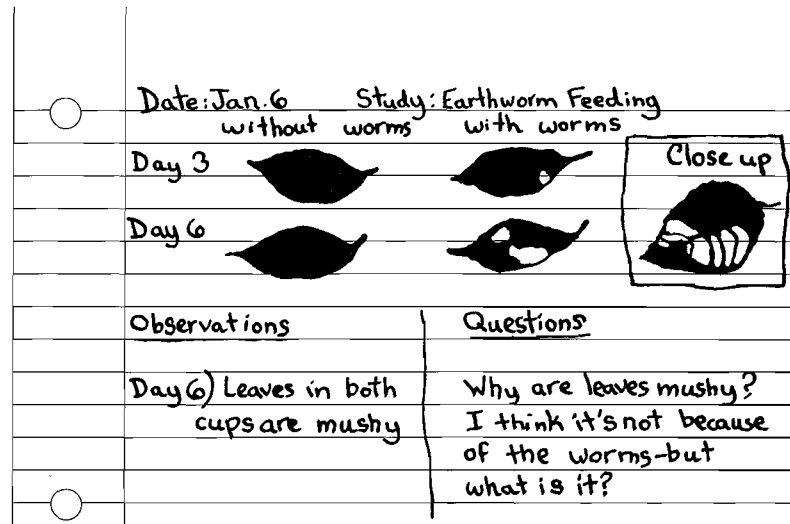 Date: Jan. 6 Study: Earthworm Feeding
without worms with worms
Day 3
Close up
Day 6
Observations
Day 6) Leaves in both
cups are mushy
Questions
Why are leaves mushy?
I think it's not because
of the worms-but
what is it?